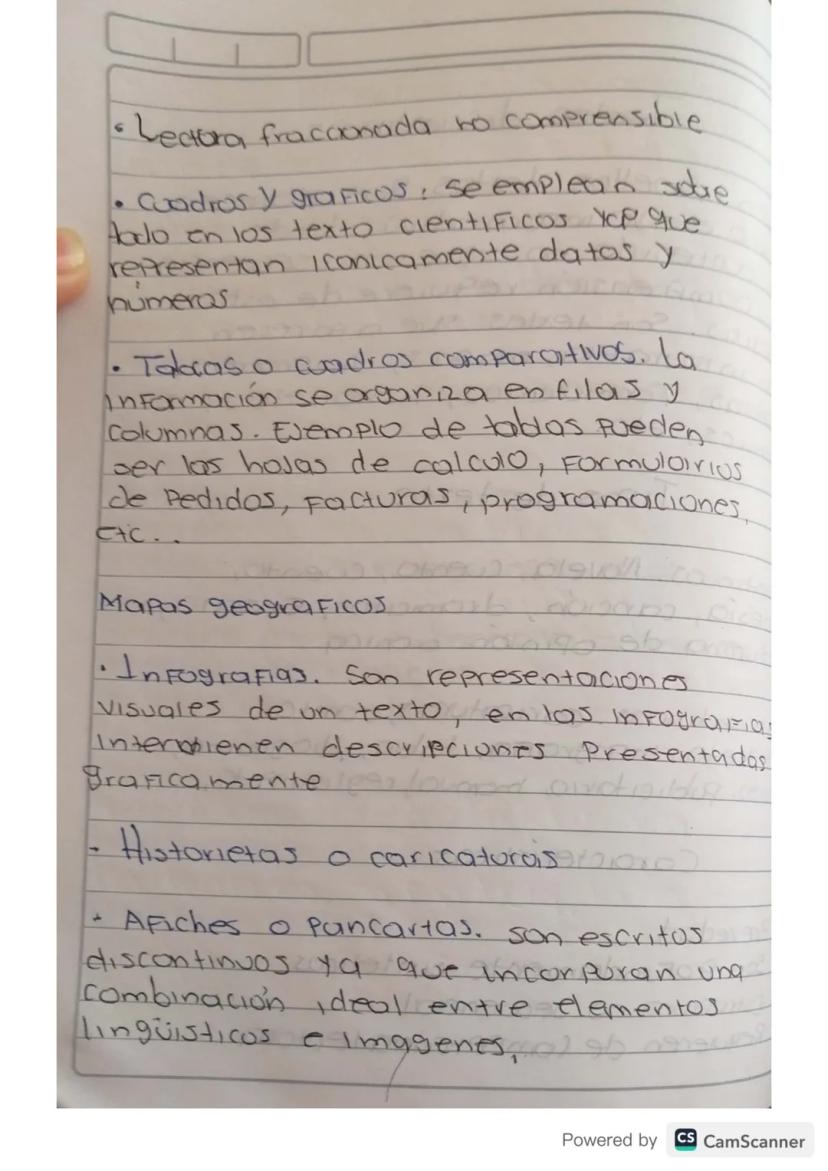 • Lectura fraccionada no comprensible
• Cuadros y graficos: Se emplean sobre
todo en los texto cientificos ya que
representan iconicamente datos y
números
• Tablas o cuadros comparativos. La
información se organiza en filas y
columnas. Ejemplo de tablas pueden
ser las hojas de calculo, Formularios
de Pedidos, Facturas, programaciones,
Etc...
Mapas geograficos
• Infografias. Son representaciones
visuales de un texto, en las infografias
intervienen descripciones Presentadas
graficamente
- Historietas o caricaturas
- Afiches o Pancartas. son escritos
discontinuos ya que incorporan una
combinación ideal entre elementos
lingüísticos e imagenes.
Powered by CS CamScanner